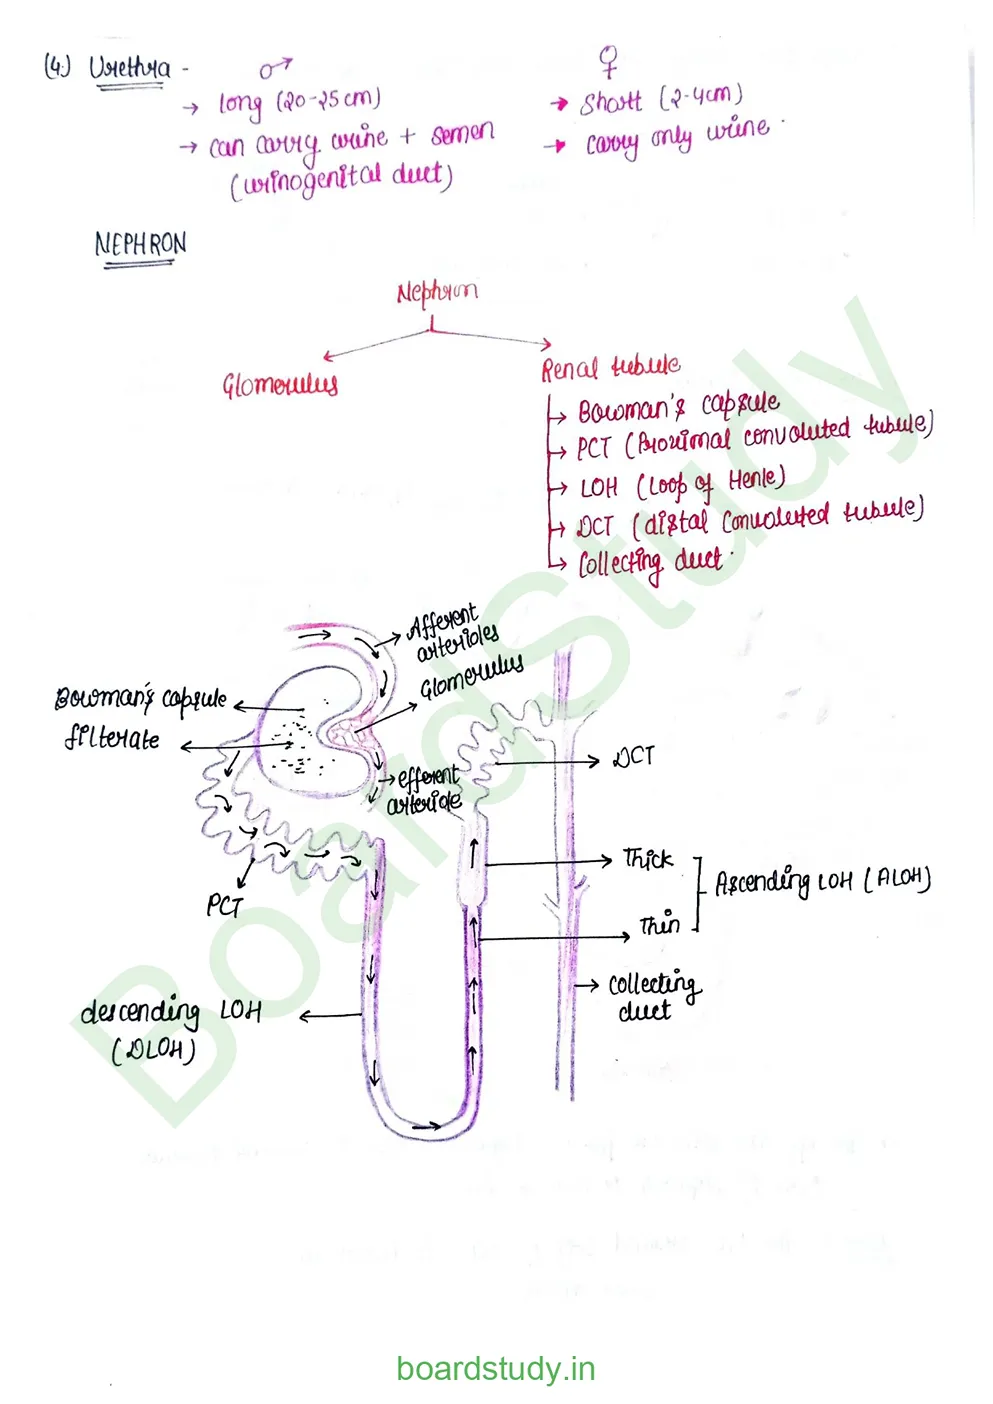 (4.) Urethra -
♂
♀
→ long (20-25cm)
→ can carry urine + semen
(urinogenital duct)
→ short (2-4cm)
→ carry only urine.
NEPHRON
Nephron
Glomerulus
Renal tubule
→ Bowman's capsule
→ PCT (Proximal convoluted tubule)
→ LOH (Loop of Henle)
→ DCT (distal convoluted tubule)
→ Collecting duct.
Afferent
arterioles
Glomerulus
Bowman's capsule
filterate
efferent
arteriole
DCT
PCT
Thick
Thin
Ascending LOH (ALOH)
Collecting
duct
descending LOH
(DLOH)
BoardStudy
boardstudy.in